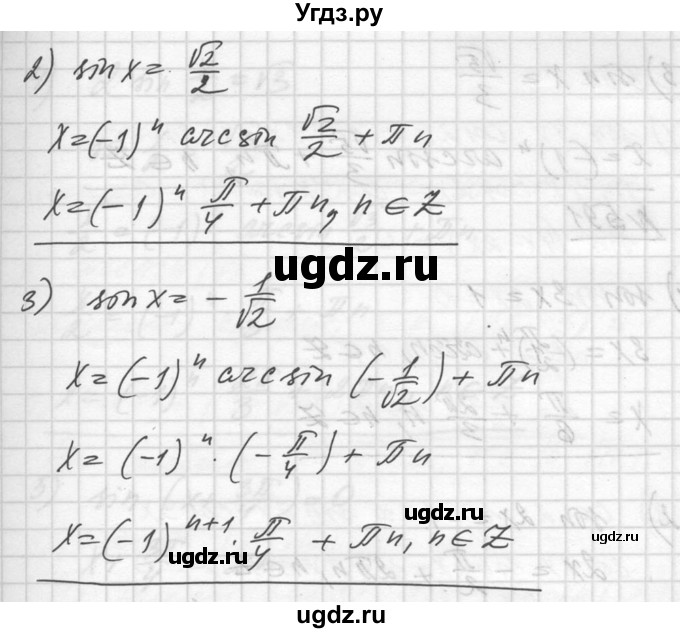 Угдз.ру
2) sin x = √2/2
x = (-1)^n arcsin √2/2 + πn
x = (-1)^n π/4 + πn, n ∈ Z
ugdz.ru
3) sin x = - 1/√2
x = (-1)^n arcsin (- 1/√2) + πn
ugdz.ru
x = (-1)^n · (- π/4) + πn
ugdz.ru
x = (-1)^{n+1} · π/4 + πn, n ∈ Z
ugdz.ru
ugdz.ru
ugdz.ru